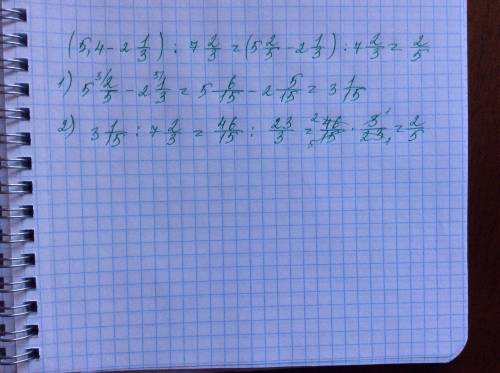 (5,4 - 2 1/3) : 7 2/3 = (5 2/5 - 2 1/3) : 7 2/3 = 2/5
1) 5 ³⁄2/5 - 2 ⁵⁄1/3 = 5 6/15 - 2 5/15 = 3 1/15
2) 3 1/15 : 7 2/3 = 46/15 : 23/3 = ²46/15₅ · 3¹/23₁ = 2/5